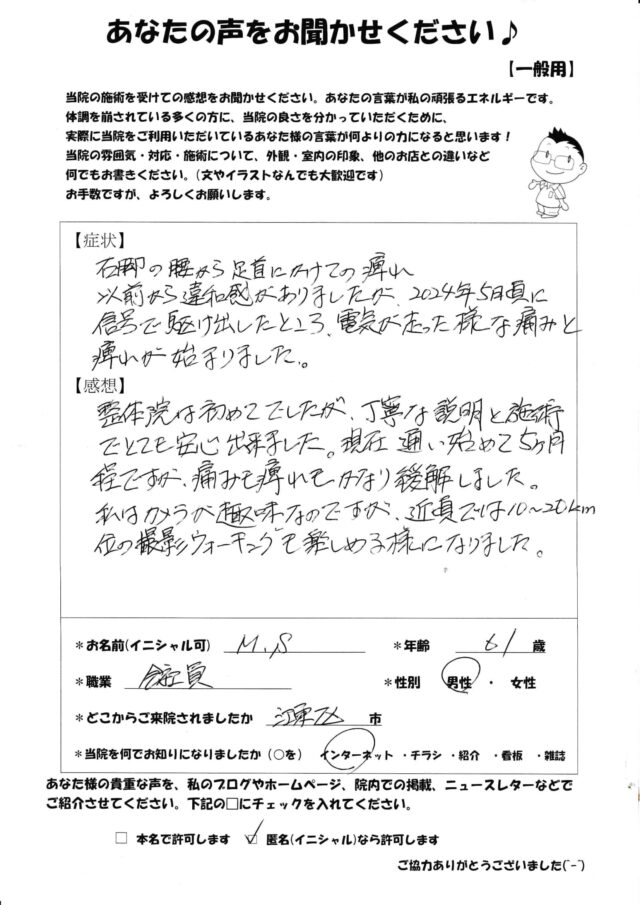 あなたの声をお聞かせください♪
【一般用】
当院の施術を受けての感想をお聞かせください。あなたの言葉が私の頑張るエネルギーです。
体調を崩されている多くの方に、当院の良さを分かっていただくために、
実際に当院をご利用いただいているあなた様の言葉が何よりの力になると思います！
当院の雰囲気・対応・施術について、外観・室内の印象、他のお店との違いなど
何でもお書きください。(文やイラストなんでも大歓迎です)
お手数ですが、よろしくお願いします。
【症状】
右脚の腰から足首にかけての痺れ
以前から違和感がありましたが、2024年5月頃に
信号で駆け出したところ、電気が走った様な痛みと
痺れが始まりました。
【感想】
整体院は初めてでしたが、丁寧な説明と施術
でとても安心出来ました。現在通い始めて5ヶ月
程ですが、痛みも痺れもかなり緩解しました。
私はカメラが趣味なのですが、近頃では10～20km
位の撮影ウォーキングも楽しめる様になりました。
＊お名前(イニシャル可) M.S ＊年齢 61 歳
＊職業 会社員 ＊性別 男性 ・ 女性
＊どこからご来院されましたか 江東区 市
＊当院を何でお知りになりましたか (○を) インターネット ・チラシ ・紹介 ・看板 ・雑誌
あなた様の貴重な声を、私のブログやホームページ、院内での掲載、ニュースレターなどで
ご紹介させてください。下記の□にチェックを入れてください。
□ 本名で許可します ☑ 匿名(イニシャル)なら許可します
ご協力ありがとうございました(^-^)